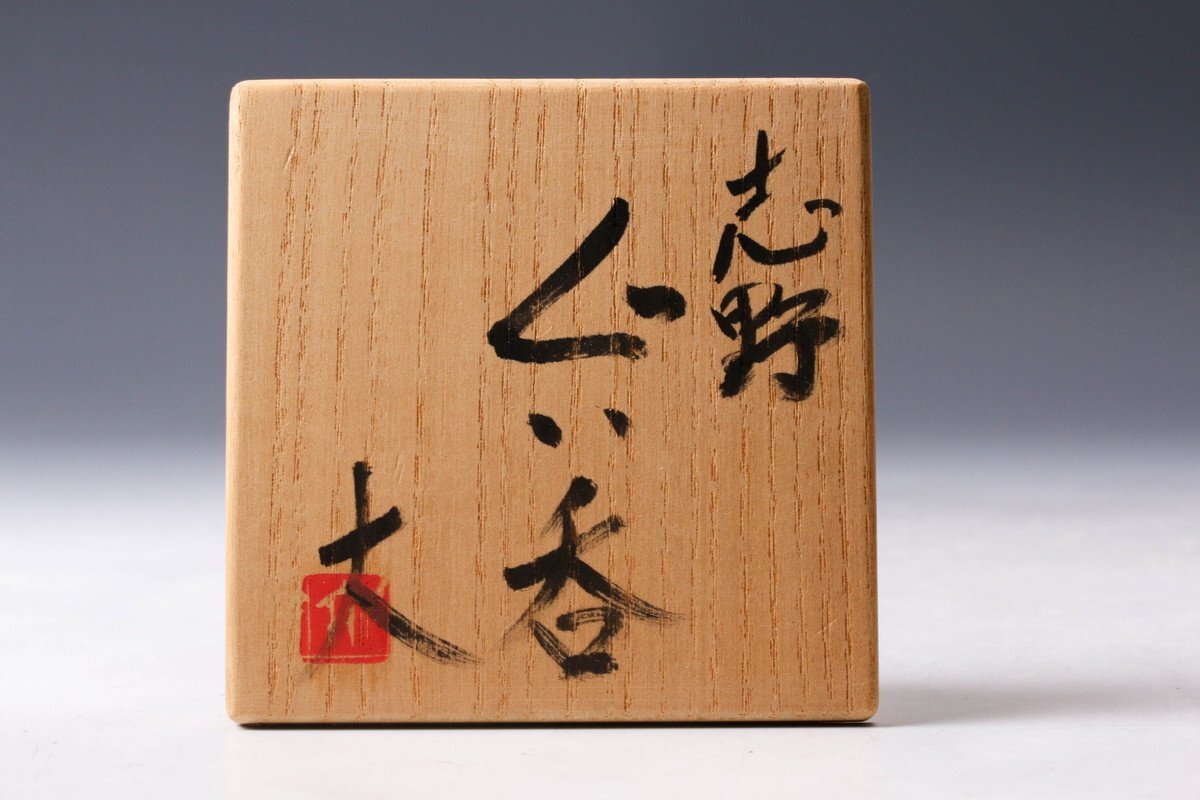 志野
ぐい呑
大